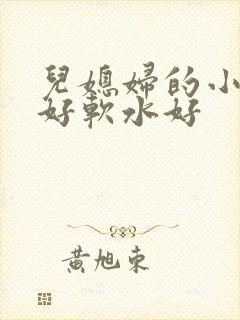 兒媳婦的小
好軟水好
黃旭東